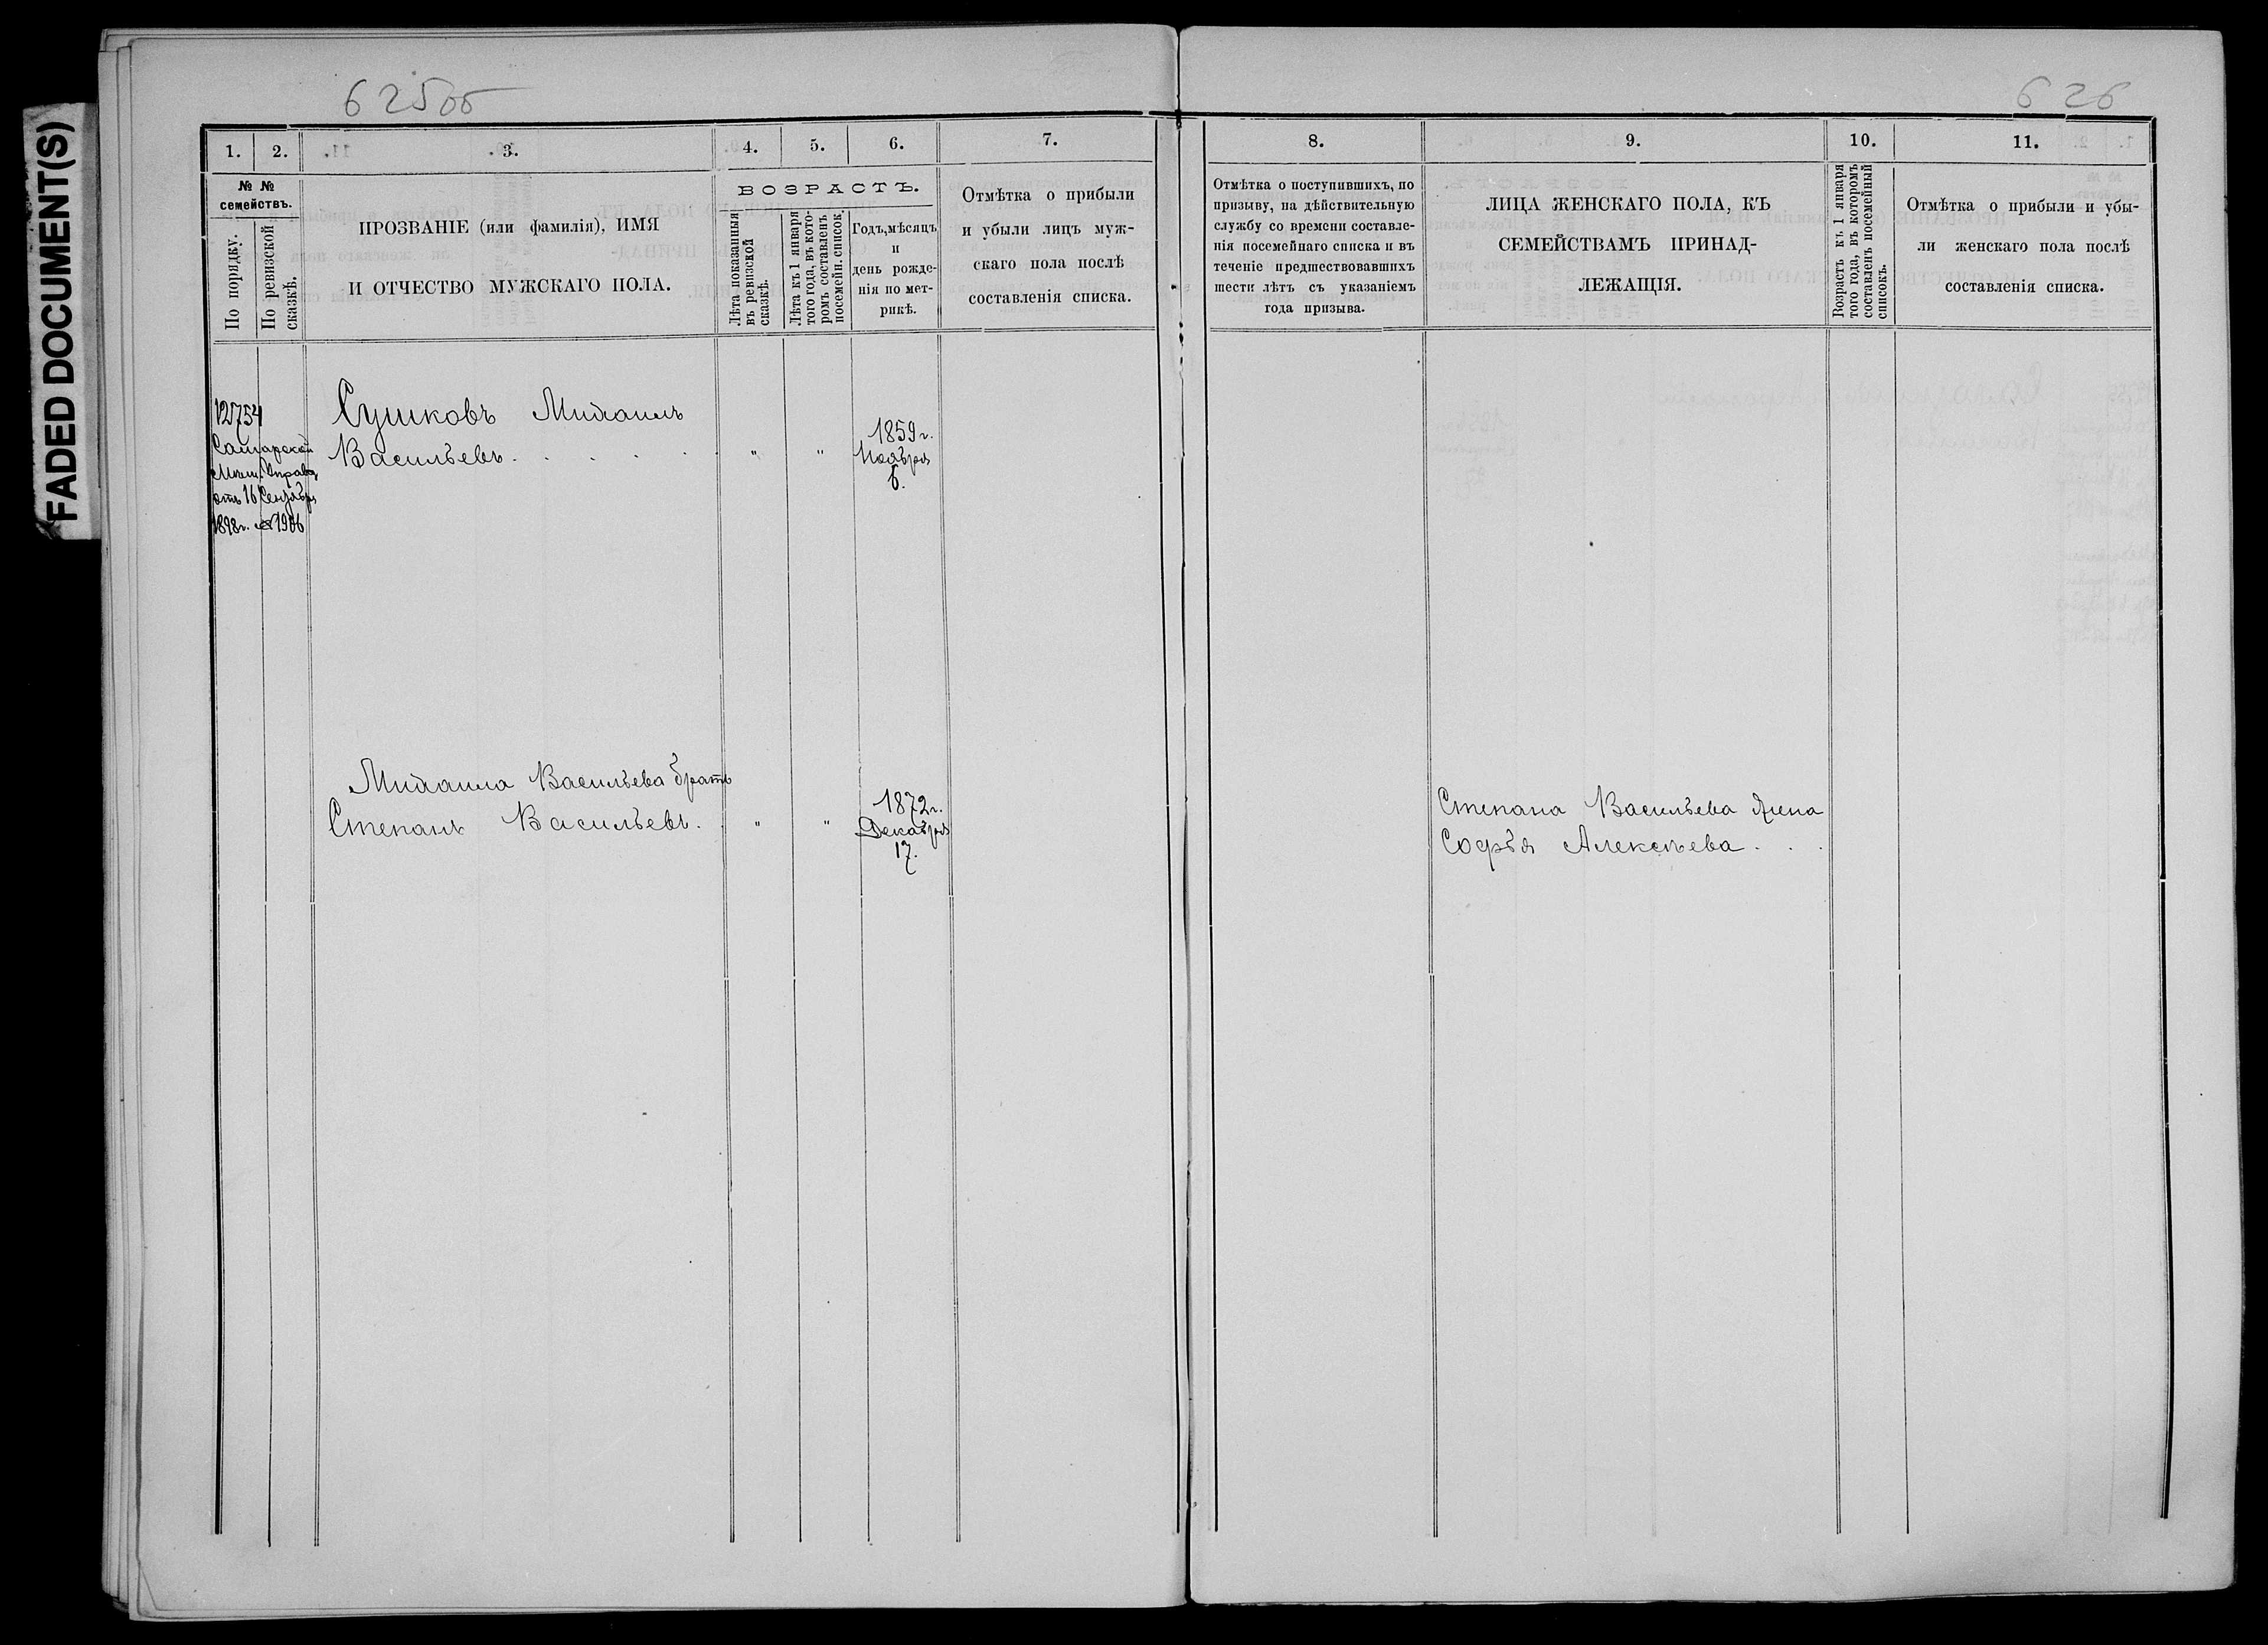 FADED DOCUMENT(S)
625об
626
1.
2.
3.
4.
5.
6.
7.
8.
9.
10.
11.
№ №
семействъ.
По порядку.
По ревизской
сказкѣ.
ПРОЗВАНІЕ (или фамилія), ИМЯ
И ОТЧЕСТВО МУЖСКАГО ПОЛА.
ВОЗРАСТЪ.
Лѣта показанныя
въ ревизской
сказкѣ.
Лѣта къ 1 января
того года, въ кото-
ромъ составленъ
посемейн. список.
Годъ, мѣсяцъ
и
день рожде-
нія по мет-
рикѣ.
Отмѣтка о прибыли
и убыли лицъ муж-
скаго пола послѣ
составленія списка.
Отмѣтка о поступившихъ, по
призыву, на дѣйствительную
службу со времени составле-
нія посемейнаго списка и въ
теченіе предшествовавшихъ
шести лѣтъ съ указаніемъ
года призыва.
ЛИЦА ЖЕНСКАГО ПОЛА, КЪ
СЕМЕЙСТВАМЪ ПРИНАД-
ЛЕЖАЩІЯ.
Возрастъ къ 1 января
того года, въ которомъ
составленъ посемейный
списокъ.
Отмѣтка о прибыли и убы-
ли женскаго пола послѣ
составленія списка.
12754
Самарской
Мѣщ. Управы
отъ 16 Сентября
1898г. № 1906
Сушковъ Михаилъ
Васильевъ . . . . . " " 1859г.
Ноября
6.
Михаила Васильева братъ
Степанъ Васильевъ. " " 1872г.
Декабря
17.
Степана Васильева жена
Софья Алексѣева . . .